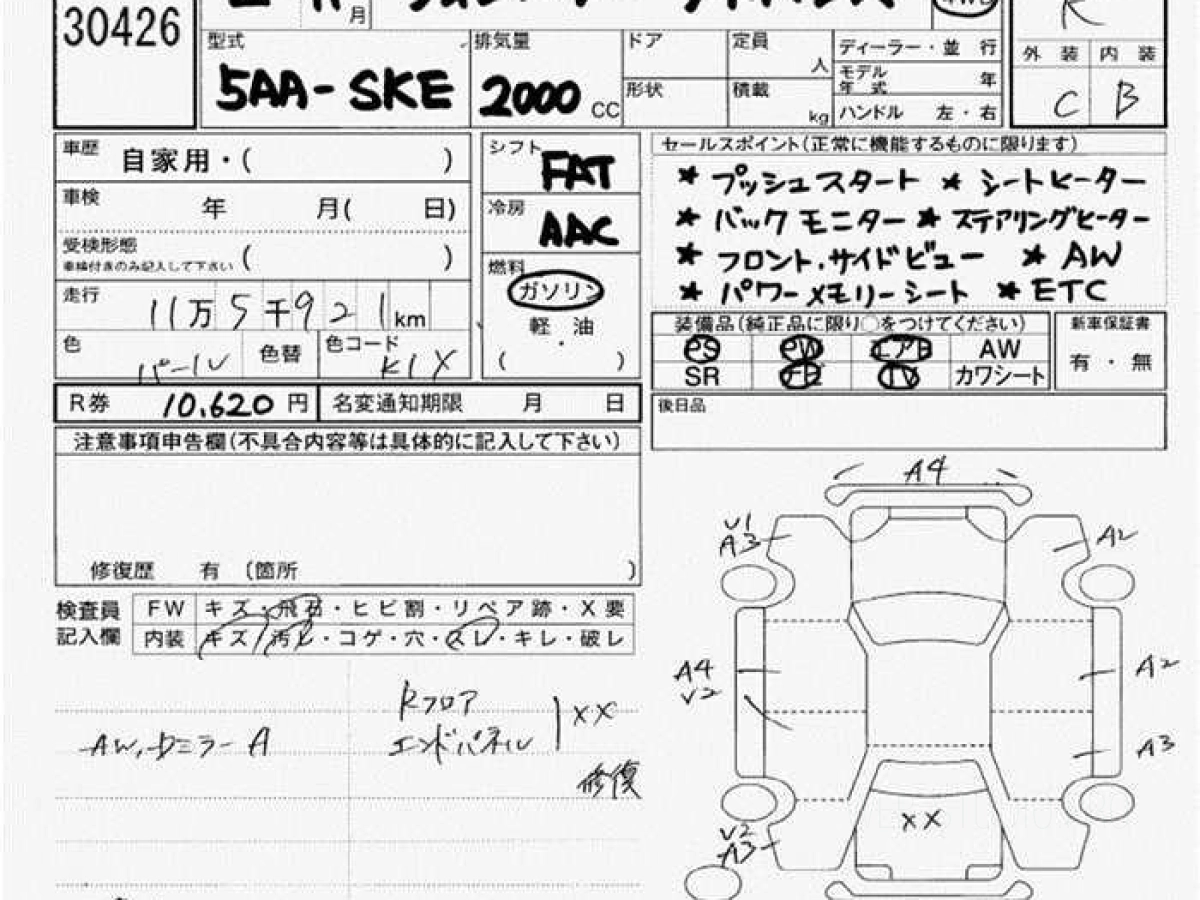 30426
月
型式 5AA-SKE
排気量 2000 CC
ドア
定員 人
形状
積載 kg
ディーラー・並 行
モデル年式 年
ハンドル 左・右
外 装 内 装
C B
車歴 自家用・( )
車検 年 月( 日)
受検形態 ( )
車検付きのみ記入して下さい
走行 11万5千921km
色 パール 色替 色コード K1X
シフト FAT
冷房 AAC
燃料 ガソリン
軽・油
( )
セールスポイント(正常に機能するものに限ります)
★ プッシュスタート ★ シートヒーター
★ バックモニター ★ ステアリングヒーター
★ フロント.サイドビュー ★ AW
★ パワーメモリーシート ★ ETC
装備品(純正品に限り○をつけてください)
PS PW エアB AW
SR ナビ TV カワシート
新車保証書
有・無
R券 10.620 円 名変通知期限 月 日
後日品
注意事項申告欄(不具合内容等は具体的に記入して下さい)
修復歴 有 (箇所 )
検査員記入欄
FW キズ・飛石・ヒビ割・リペア跡・X要
内装 キズ・汚レ・コゲ・穴・スレ・キレ・破レ
Rフロア
エンドパネル XX
修復
AW,ドミラーA
A4
V1
A3
A2
A4
V2
A2
A3
XX
V2
A3